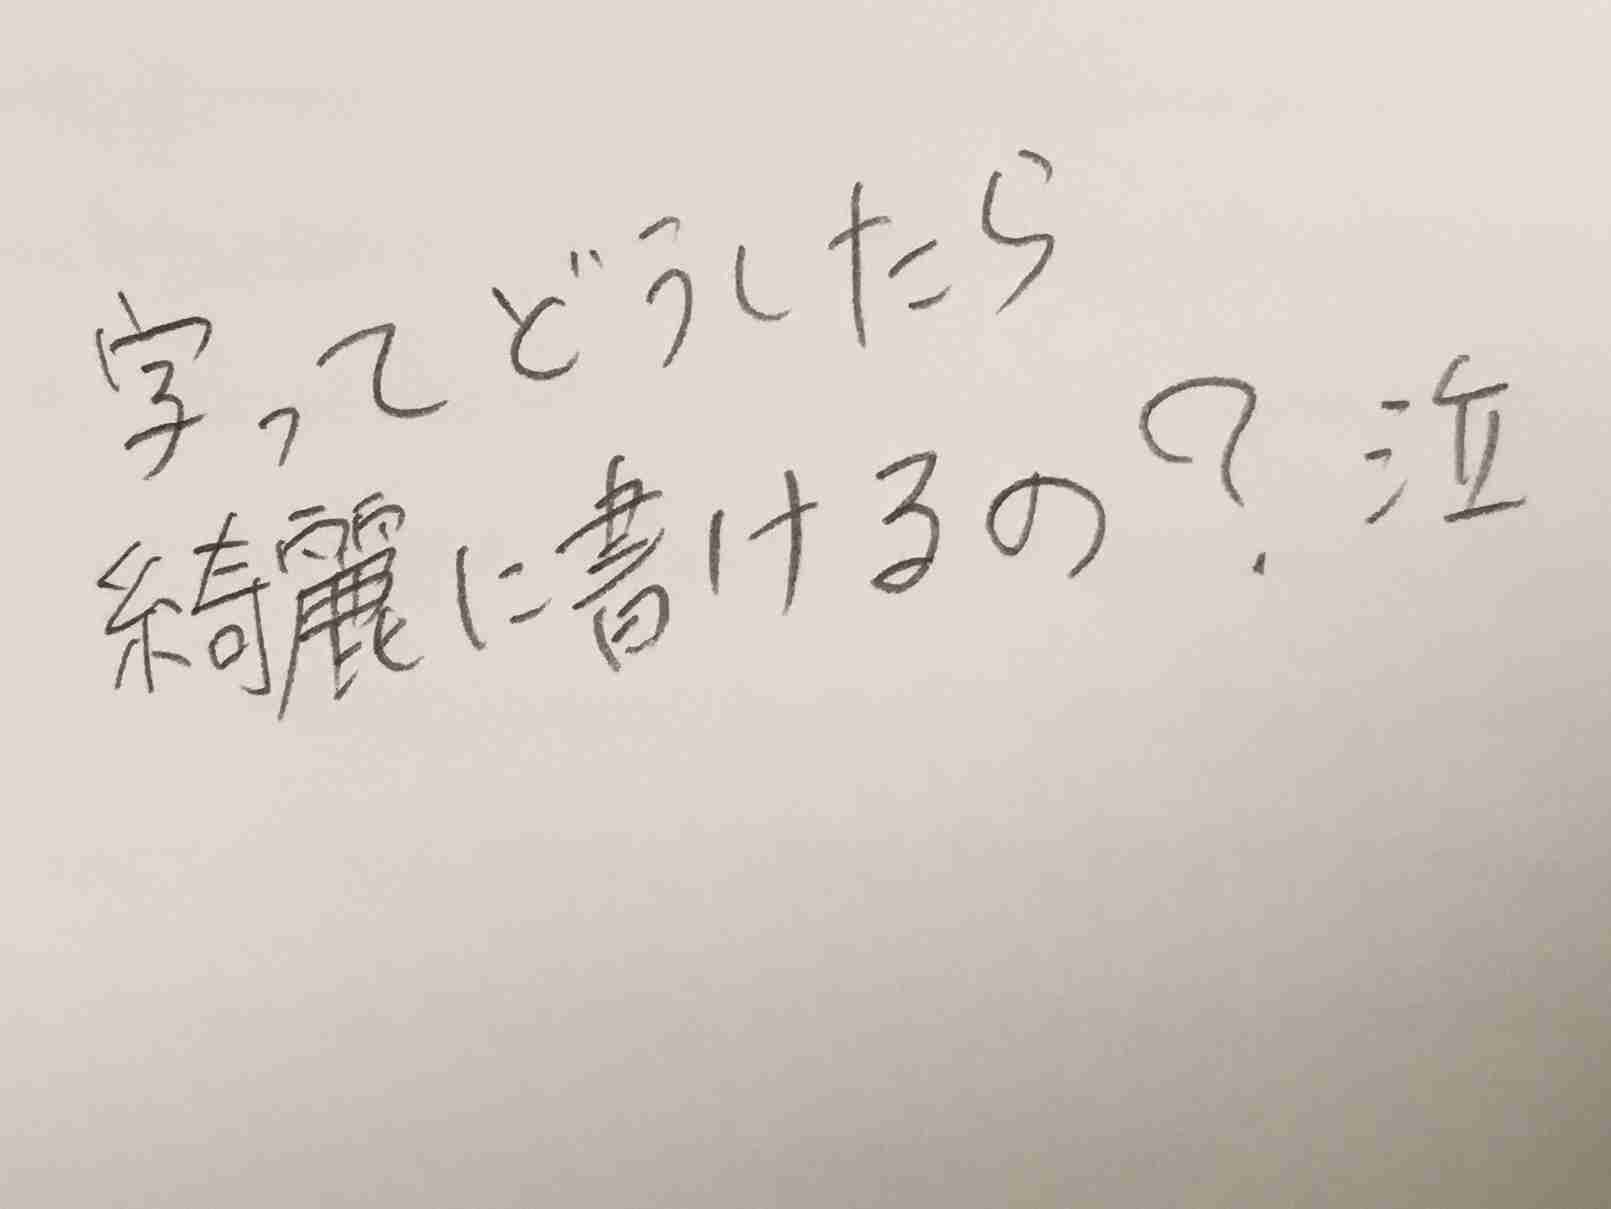 字ってどうしたら
綺麗に書けるの？泣